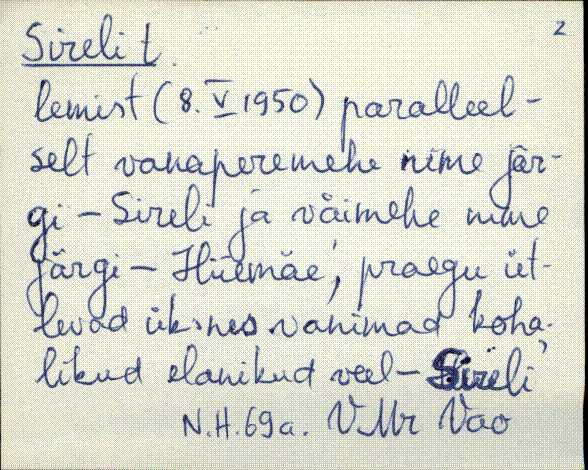 2
Sireli t.
lemist (8. V 1950) paralleel-
selt vanaperemehe nime jär-
gi – Sireli ja väimehe nime
järgi – Hiiemäe, praegu üt-
levad üksnes vanimad koha-
likud elanikud veel – Sireli
N.H. 69a. VMr Vao